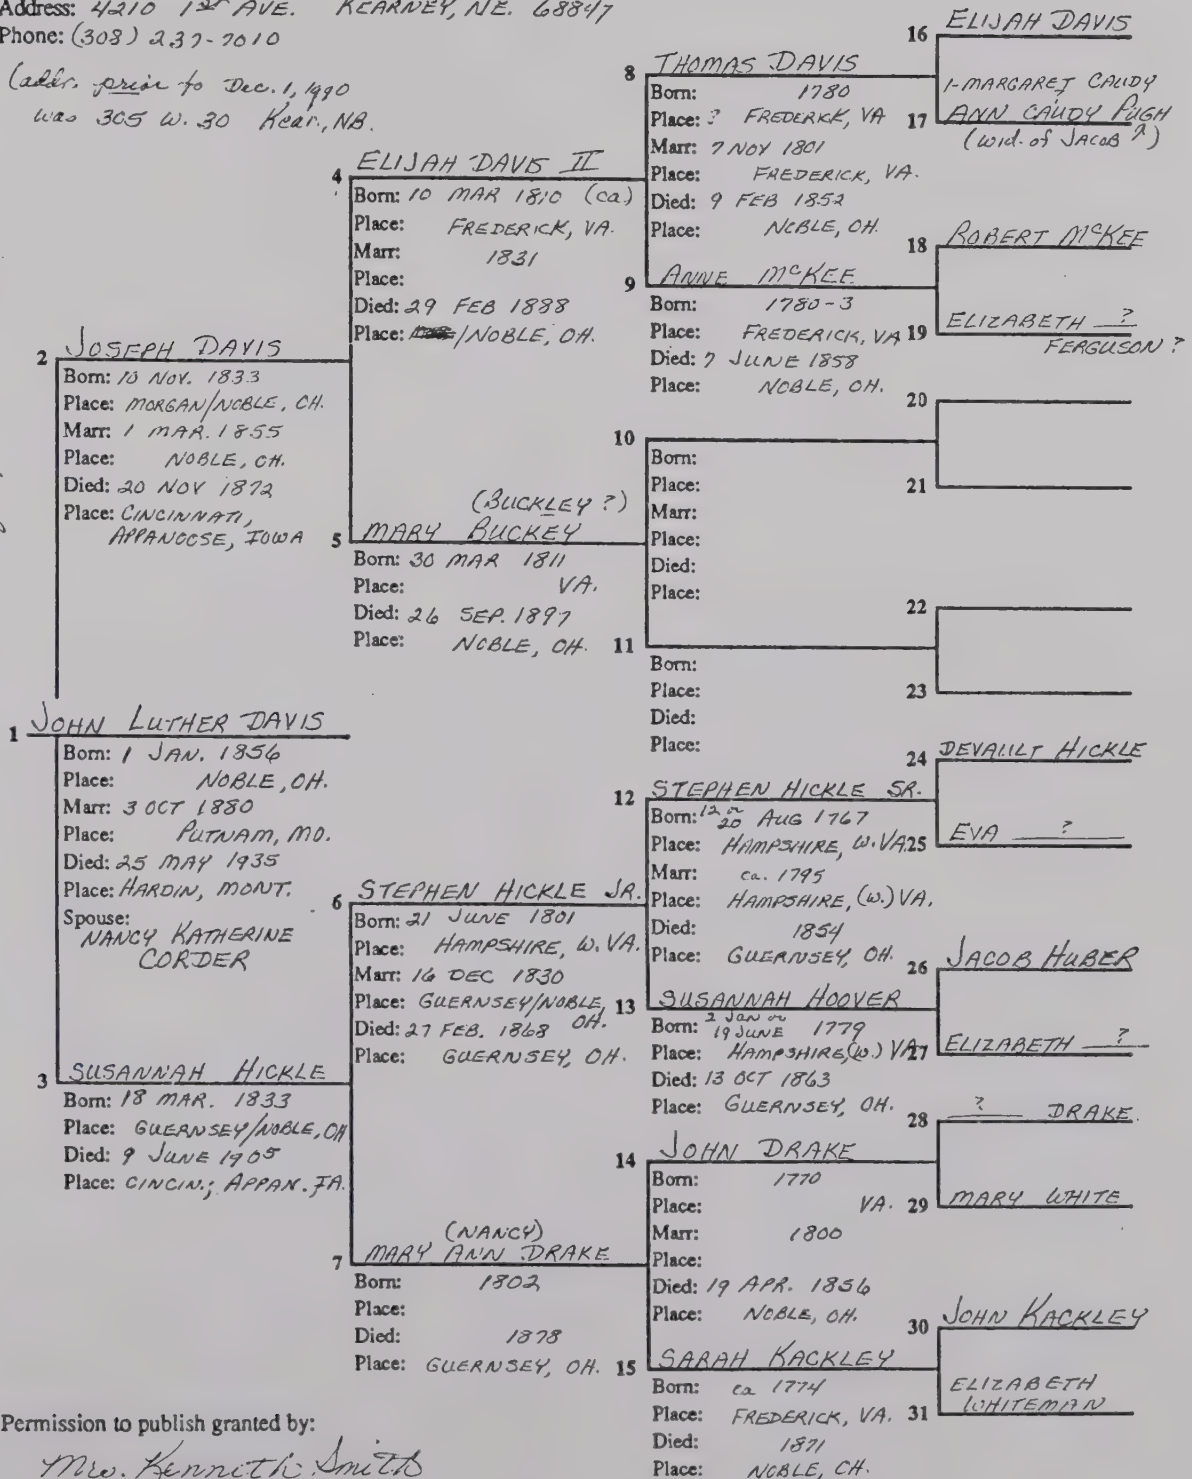 Address: 4210 1ST AVE. KEARNEY, NE. 68847
Phone: (308) 237-7010
(addr. prior to Dec. 1, 1990
was 305 W. 30 Kear., NB.
1 JOHN LUTHER DAVIS
Born: 1 JAN. 1856
Place: NOBLE, OH.
Marr: 3 OCT 1880
Place: PUTNAM, MO.
Died: 25 MAY 1935
Place: HARDIN, MONT.
Spouse:
NANCY KATHERINE
CORDER
2 JOSEPH DAVIS
Born: 10 NOV. 1833
Place: MORGAN/NOBLE, OH.
Marr: 1 MAR. 1855
Place: NOBLE, OH.
Died: 20 NOV 1872
Place: CINCINNATI,
APPANOOSE, IOWA
3 SUSANNAH HICKLE
Born: 18 MAR. 1833
Place: GUERNSEY/NOBLE, OH
Died: 9 JUNE 1905
Place: CINCIN.; APPAN. IA.
4 ELIJAH DAVIS II
Born: 10 MAR 1810 (ca.)
Place: FREDERICK, VA.
Marr: 1831
Place:
Died: 29 FEB 1888
Place: /NOBLE, OH.
(BUCKLEY ?)
5 MARY BUCKEY
Born: 30 MAR 1811
Place: VA.
Died: 26 SEP. 1897
Place: NOBLE, OH.
6 STEPHEN HICKLE JR.
Born: 21 JUNE 1801
Place: HAMPSHIRE, W. VA.
Marr: 16 DEC 1830
Place: GUERNSEY/NOBLE, OH.
Died: 27 FEB. 1868
Place: GUERNSEY, OH.
(NANCY)
7 MARY ANN DRAKE
Born: 1802
Place:
Died: 1878
Place: GUERNSEY, OH.
8 THOMAS DAVIS
Born: 1780
Place: ? FREDERICK, VA
Marr: 7 NOV 1801
Place: FREDERICK, VA.
Died: 9 FEB 1852
Place: NOBLE, OH.
9 ANNE McKEE
Born: 1780-3
Place: FREDERICK, VA
Died: 7 JUNE 1858
Place: NOBLE, OH.
10
Born:
Place:
Marr:
Place:
Died:
Place:
11
Born:
Place:
Died:
Place:
12 STEPHEN HICKLE SR.
Born: 12 or 20 AUG 1767
Place: HAMPSHIRE, W. VA
Marr: ca. 1795
Place: HAMPSHIRE, (W.) VA.
Died: 1854
Place: GUERNSEY, OH.
13 SUSANNAH HOOVER
Born: 2 Jan or 19 JUNE 1779
Place: HAMPSHIRE, (W.) VA
Died: 13 OCT 1863
Place: GUERNSEY, OH.
14 JOHN DRAKE
Born: 1770
Place: VA.
Marr: 1800
Place:
Died: 19 APR. 1856
Place: NOBLE, OH.
15 SARAH KACKLEY
Born: ca 1774
Place: FREDERICK, VA.
Died: 1871
Place: NOBLE, OH.
16 ELIJAH DAVIS
1-MARGARET CAUDY
17 ANN CAUDY PUGH
(wid. of JACOB ?)
18 ROBERT McKEE
19 ELIZABETH ?
FERGUSON ?
20
21
22
23
24 DEVAULT HICKLE
25 EVA ?
26 JACOB HUBER
27 ELIZABETH ?
28 ? DRAKE
29 MARY WHITE
30 JOHN KACKLEY
31 ELIZABETH
WHITEMAN
Permission to publish granted by:
Mrs. Kenneth Smith